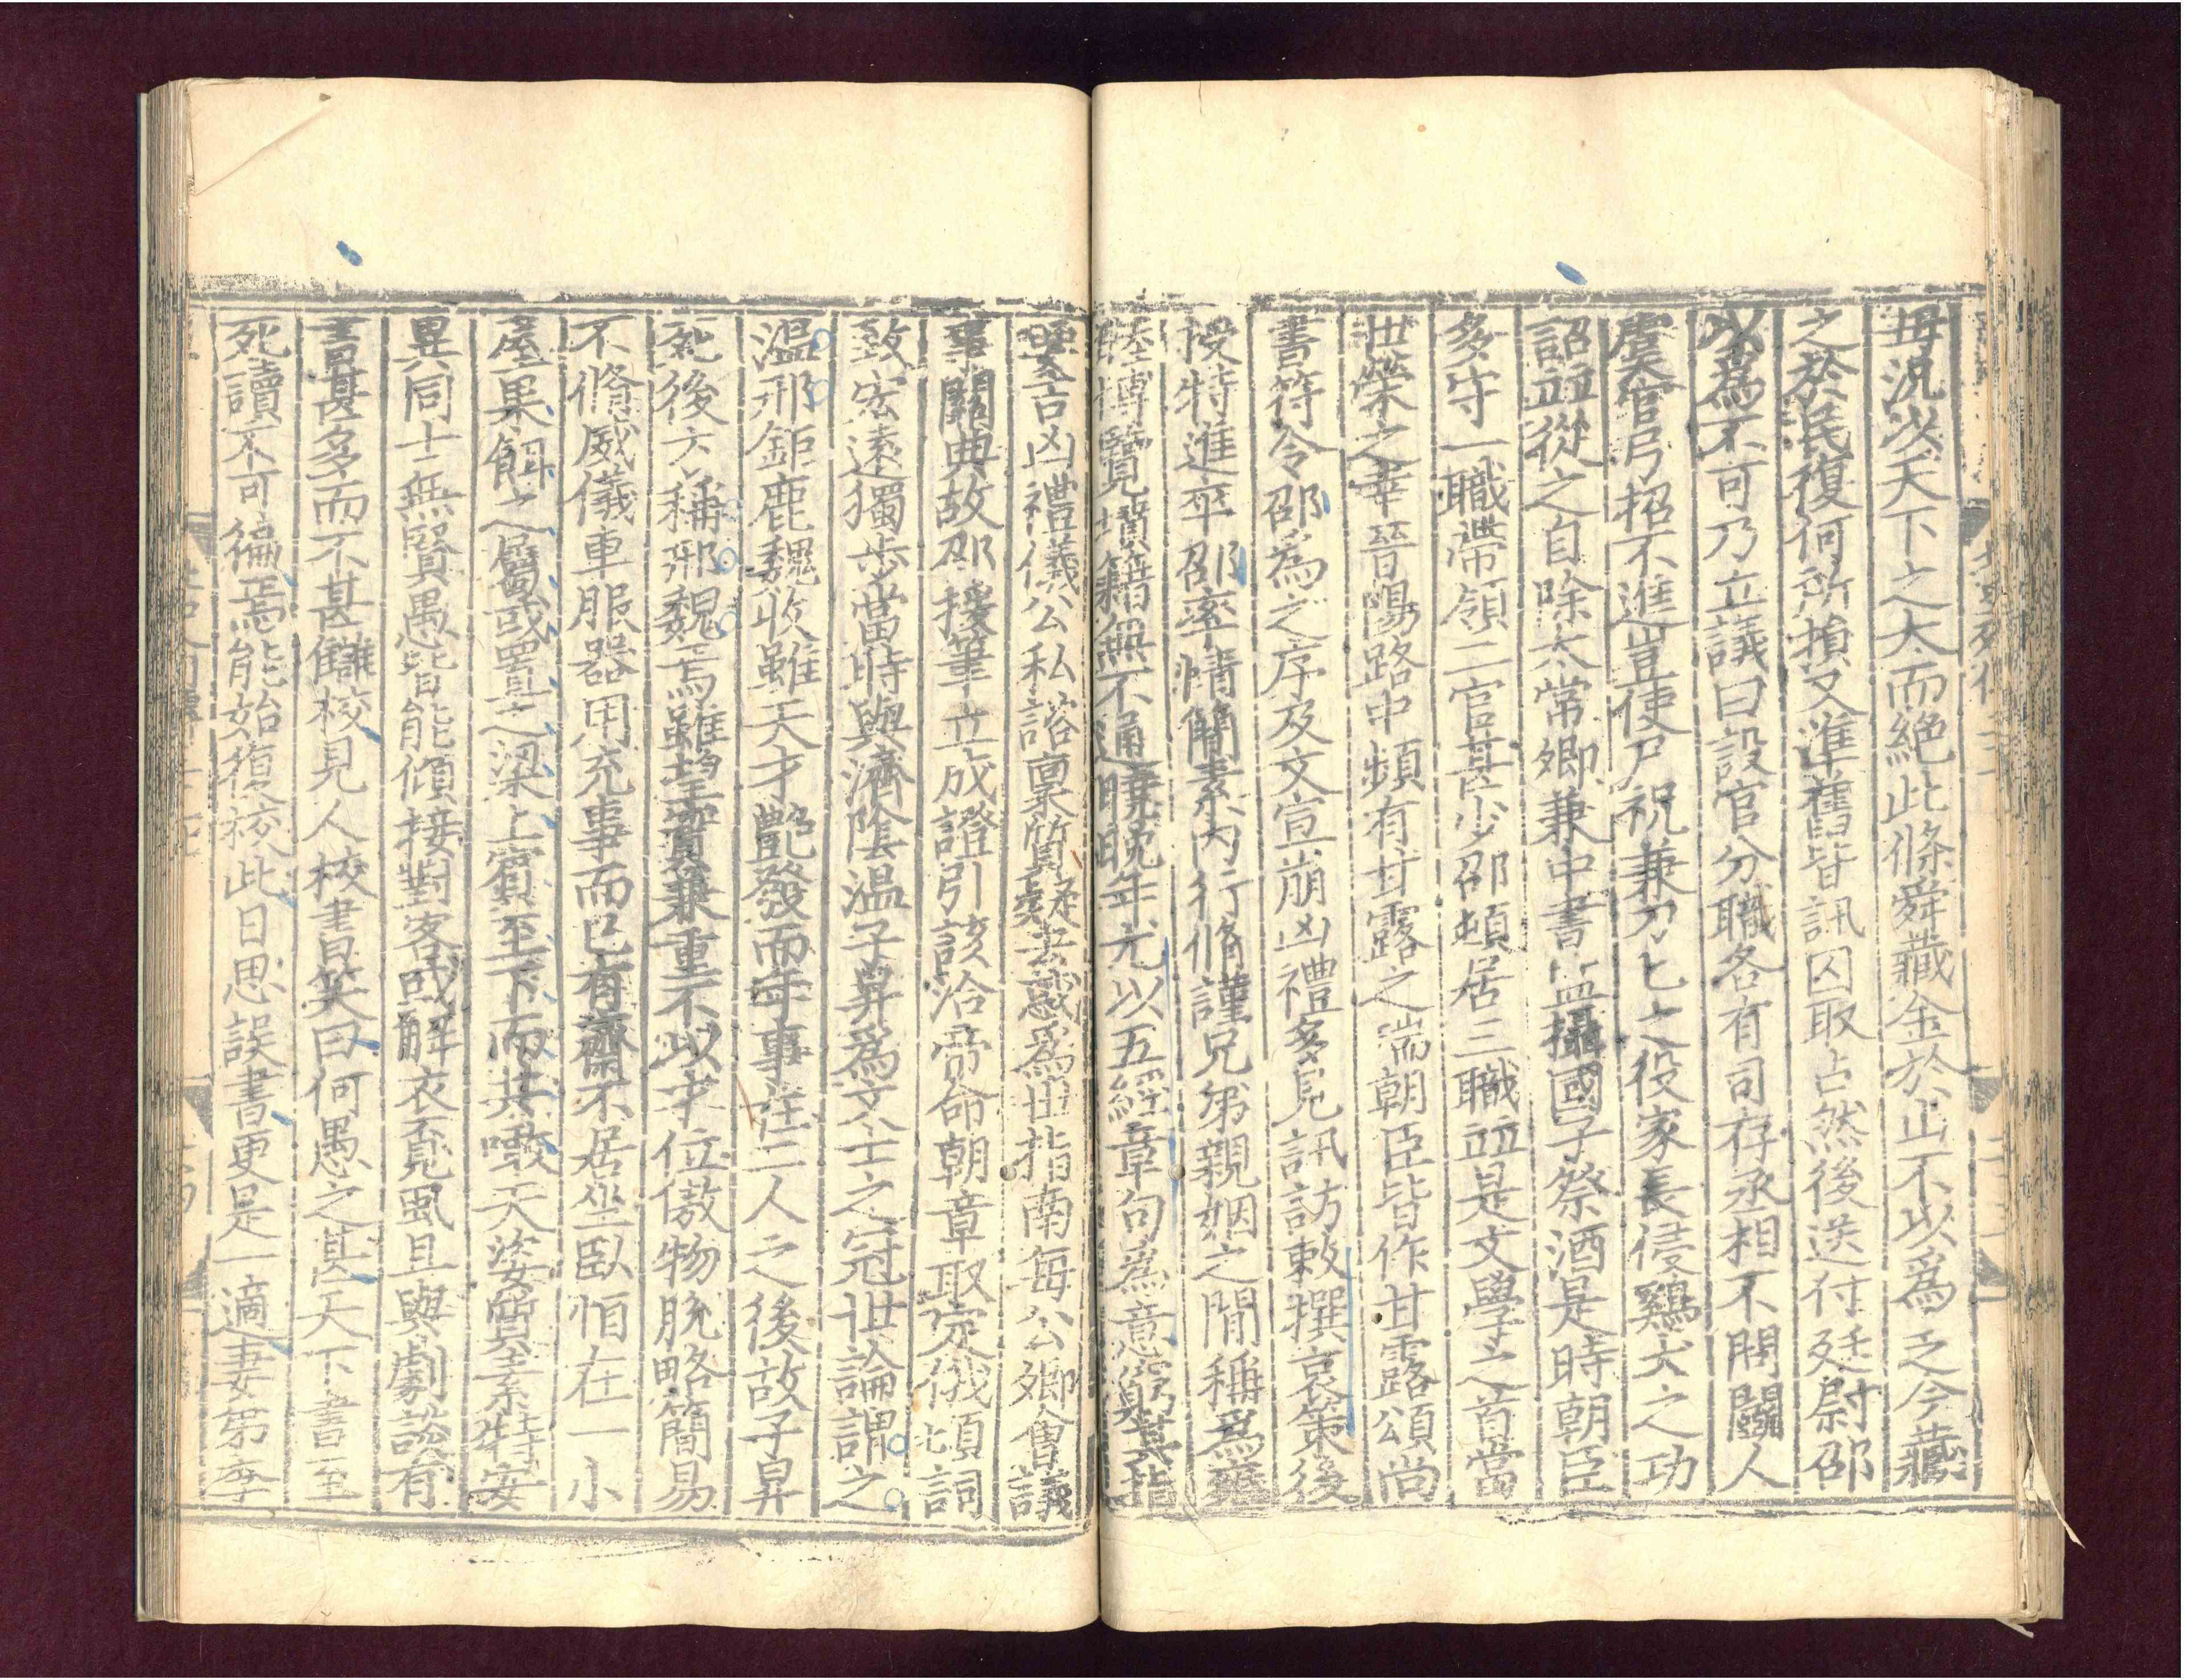 毋況以天下之大而絕此條舜藏金於山不以爲乏今藏
之於民復何所損又準舊皆訊囚取占然後送付廷尉邵
以爲不可乃立議曰設官分職各有司存丞相不問鬭人
虞官弓招不進豈使尸祝兼刀匕之役家長侵鷄犬之功
詔並從之自除太常卿兼中書監攝國子祭酒是時朝臣
多守一職帶領二官甚少邵頓居三職並是文學之首當
世榮之幸晉陽路中頻有甘露之瑞朝臣皆作甘露頌尚
書符令邵爲之序及文宣崩凶禮多見訊訪敕撰哀策後
授特進卒邵率情簡素內行脩謹兄弟親姻之閒稱爲雍
睦博覽墳籍無不通曉晚年尤以五經章句爲意窮其指
要吉凶禮儀公私諮稟質疑去惑爲世指南每公卿會議
事關典故邵援筆立成證引該洽帝命朝章取定俄頃詞
致宏遠獨步當時與濟陰温子昇爲文士之冠世論謂之
温邢鉅鹿魏收雖天才艶發而年事在二人之後故子昇
死後方稱邢魏焉雖望實兼重不以才位傲物脫略簡易
不脩威儀車服器用充事而已有齋不居坐臥恒在一小
屋果餌之屬或置之梁上賓至下而共噉天姿質素特安
異同士無賢愚皆能傾接對客或解衣覓虱且與劇談有
書甚多而不甚讎校見人校書笑曰何愚之甚天下書至
死讀不可徧焉能始復校此日思誤書更是一適妻弟李